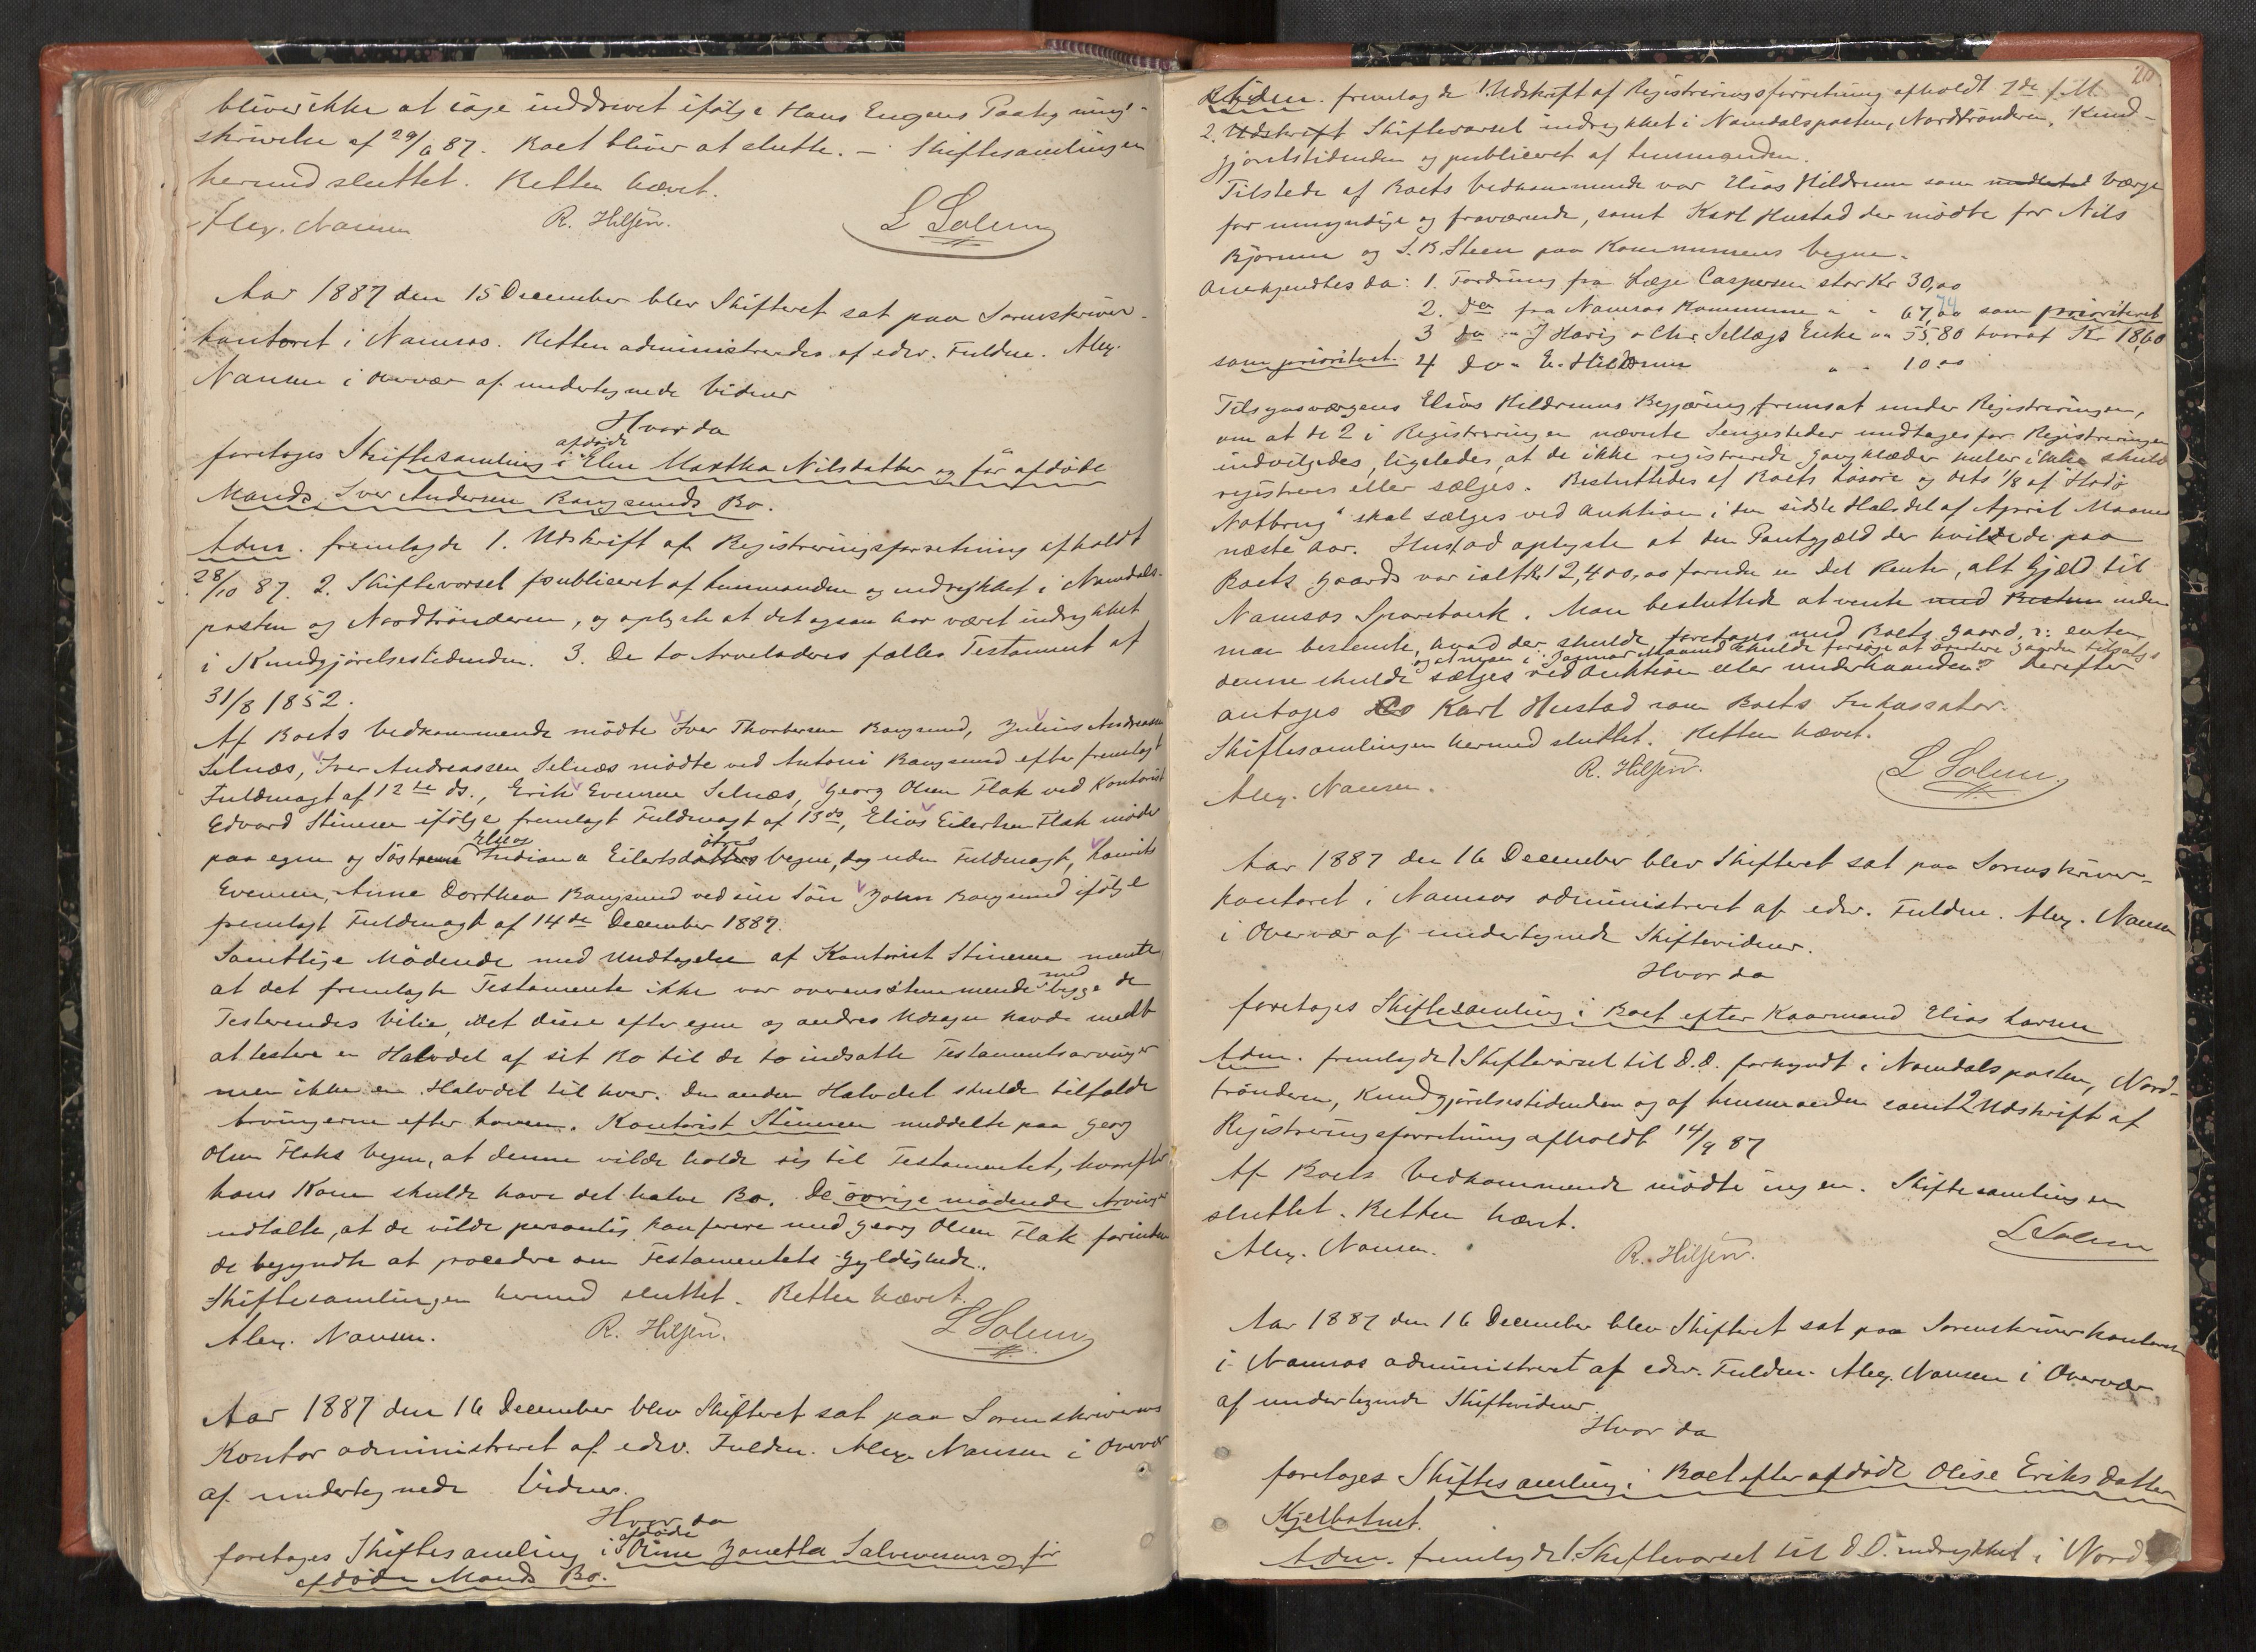 bliver ikke at søge inddrevet ifølge Hans Eugens Paategnings-
skrivelse af 29/6 87. Boet bliver at slutte. – Skiftesamlingen
hermed sluttet. Retten hævet.
Alex. Nansen R. Hilsen. L Solem
Aar 1887 den 15 December blev Skifteret sat paa Sorenskriver-
kontoret i Namsos. Retten administreredes af edsv. Fuldm. Alex.
Nansen i Overvær af undertegnede Vidner
Hvor da
foretoges Skiftesamling i afdøde Elen Martha Nilsdatter og før afdøde
Mands Iver Andersen Bangsunds Bo.
Adm. fremlagde 1. Udskrift af Registreringsforretning afholdt
28/10 87. 2. Skiftevarsel publiceret af Lensmanden og indrykket i Namdals-
posten og Nordtrønderen, og oplyste at det ogsaa har været indrykket
i Kundgjørelsestidenden. 3. De to Arveladeres fælles Testament af
31/8 1852.
Af Boets Vedkommende mødte Iver Thorbersen Bangsund, Julius Andreassen
Selnæs, Iver Andreassen Selnæs mødte ved Antoni Bangsund efter fremlagt
Fuldmagt af 12te ds., Erik Evensen Selnæs, Georg Olsen Flak ved Kontorist
Edvard Stinesen ifølge fremlagt Fuldmagt af 13 ds, Elias Eilertsen Flak møder
paa egne og Søstrene Else og Indiana Eilertsdøtres Vegne, dog uden Fuldmagt, Lourits
Evensen, Anne Dorthea Bangsund ved sin Søn John Bangsund ifølge
fremlagt Fuldmagt af 14de December 1887.
Samtlige Mødende med Undtagelse af Kontorist Stinesen mente
at det fremlagte Testamente ikke var overensstemmende med begge de
Testerendes Vilie, idet disse efter egne og andres Udsagn havde ment
at testere en Halvdel af sit Bo til de to indsatte Testamentsarvinger
men ikke en Halvdel til hver. Den anden Halvdel skulde tilfalde
Arvingerne efter Loven. Kontorist Stinesen meddelte paa Georg
Olsen Flaks Vegne, at denne vilde holde sig til Testamentet, hvorefter
hans Kone skulde have det halve Bo. De øvrige mødende Arvinger
udtalte, at de vilde personlig konferere med Georg Olsen Flak forinden
de begyndte at procedere om Testamentets Gyldighed.
Skiftesamlingen hermed sluttet. Retten hævet.
Alex. Nansen. R. Hilsen. L Solem
Aar 1887 den 16 December blev Skifteret sat paa Sorenskriverens
Kontor administreret af edsv. Fuldm. Alex Nansen i Overvær
af undertegnede Vidner.
Hvor da
foretoges Skiftesamling i afdøde Oline Janetta Salvesens og før
afdøde Mands Bo.
Adm. fremlagde 1. Udskrift af Registreringsforretning afholdt 7de f. M.
2. Udskrift Skiftevarsel indrykket i Namdalsposten, Nordtrønderen, Kund-
gjørelstidenden og publiceret af Lensmanden.
Tilstede af Boets Vedkommende var Elias Hildrum som Værge
for umyndige og fraværende, samt Karl Hustad der mødte for Nils
Bjørum og S. B. Steen paa Kommunens Vegne.
Anerkjendtes da: 1. Fordring fra Læge Caspersen stor Kr 30,00
2. do fra Namsos Kommune " " 67,00 74 som prioriteret
3 do " J Havig o Chr. Sellægs Enke " " 55,80 hvoraf Kr 18,60
som prioriteret. 4 do " E. Hildrum " " 10.00
Tilsynsværgens Elias Hildrums Begjæring, fremsat under Registreringen,
om at de 2 i Registreringen nævnte Sengesteder undtages for Registreringen
indvilgedes, ligeledes at de ikke registrerede Gangklæder heller ikke skulde
registreres eller sælges. Besluttedes af Boets Løsøre og dets 1/8 af "Stadø
Notbrug" skal sælges ved Auktion i den sidste Halvdel af April Maaned
næste Aar. Hustad oplyste at den Pantgjæld der hvilede paa
Boets Gaard var ialt Kr 12,400,00 foruden en Del Renter, alt Gjæld til
Namsos Sparebank. Man besluttede at vente med Resten inden
man bestemte, hvad der skulde foretages med Boets Gaard, ɔ: enten
og at man i Januar Maaned skulde forsøge at avertere Gaarden tilsalgs
denne skulde sælges ved Auktion eller underhaanden. Derefter
antoges Karl Hustad som Boets Inkassator.
Skiftesamlingen hermed sluttet. Retten hævet.
Alex. Nansen. R. Hilsen. L Solem
Aar 1887 den 16 December blev Skifteret sat paa Sorenskriver-
kontoret i Namsos administreret af edsv. Fuldm. Alex. Nansen
i Overvær af undertegnede Skiftevidner.
Hvor da
foretoges Skiftesamling i Boet efter Kaarmand Elias Larsen
Adm. fremlagde 1 Skiftevarsel til D.D. forkyndt i Namdalsposten, Nord-
trønderen, Kundgjørelsestidenden og af Lensmanden samt 2 Udskrift af
Registreringsforretning afholdt 14/9 87
Af Boets Vedkommende mødte ingen. Skiftesamlingen
sluttet. Retten hævet.
Alex. Nansen. R. Hilsen. L Solem
Aar 1887 den 16 December blev Skifteret sat paa Sorenskriverkontoret
i Namsos administreret af edsv. Fuldm. Alex. Nansen i Overvær
af undertegnede Skiftevidner.
Hvor da
foretoges Skiftesamling i Boet efter afdøde Olise Eriksdatter
Kjelbotnet.
Adm. fremlagde 1. Skiftevarsel til D.D. indrykket i Nord-